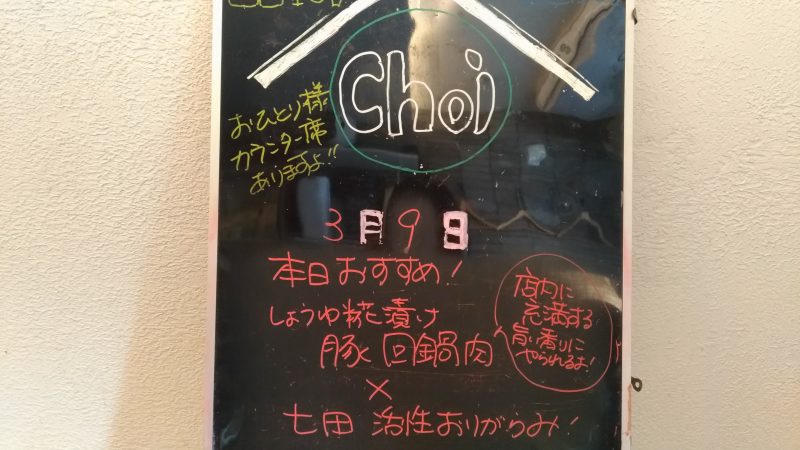 Choi
おひとり様
カウンター席
ありますよ!!
3月9日
本日おすすめ!
しょうゆ糀漬け
豚回鍋肉
×
七田 活性おりがらみ!
店内に
充満する
旨い香りに
やられるよ!